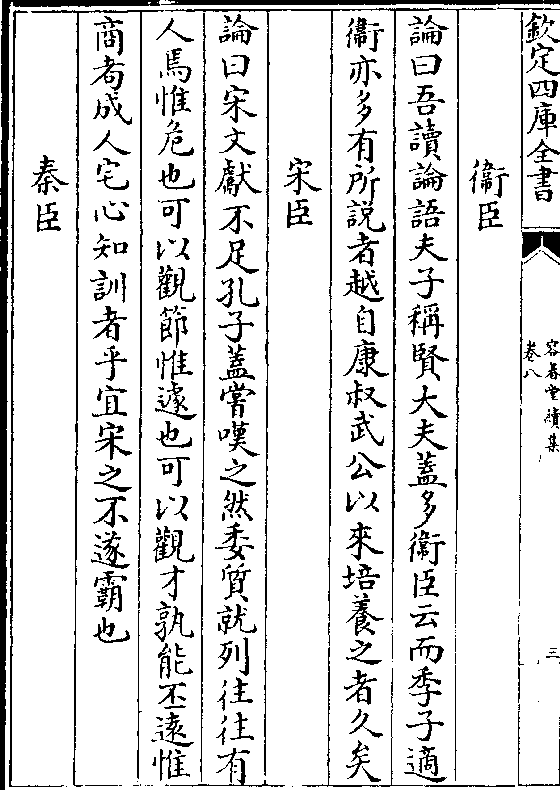 欽定四庫全書
容春堂續集
卷八
三
衞臣
論曰吾讀論語夫子稱賢大夫蓋多衞臣云而季子適
衞亦多有所説者越自康叔武公以來培養之者久矣
宋臣
論曰宋文獻不足孔子蓋嘗嘆之然委質就列往往有
人焉惟危也可以觀節惟遽也可以觀才孰能丕逺惟
商耉成人宅心知訓者乎宜宋之不遂霸也
秦臣